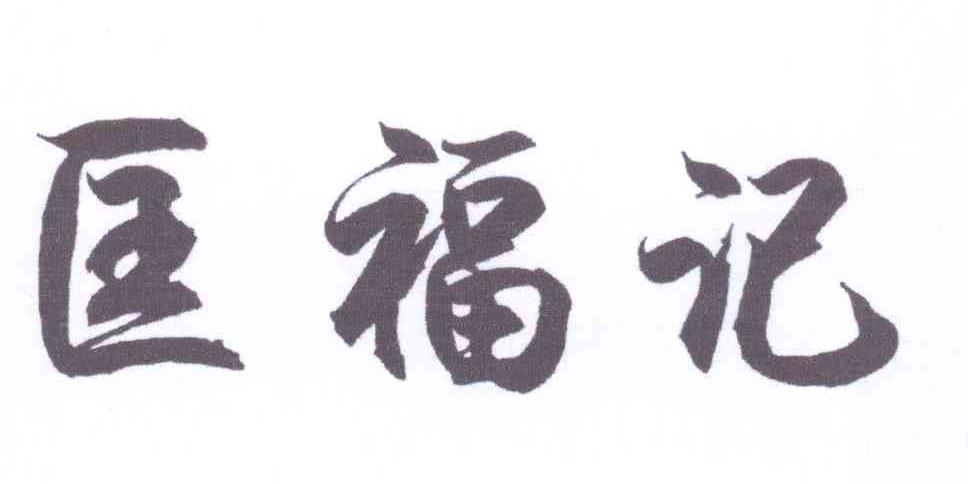 匡福记